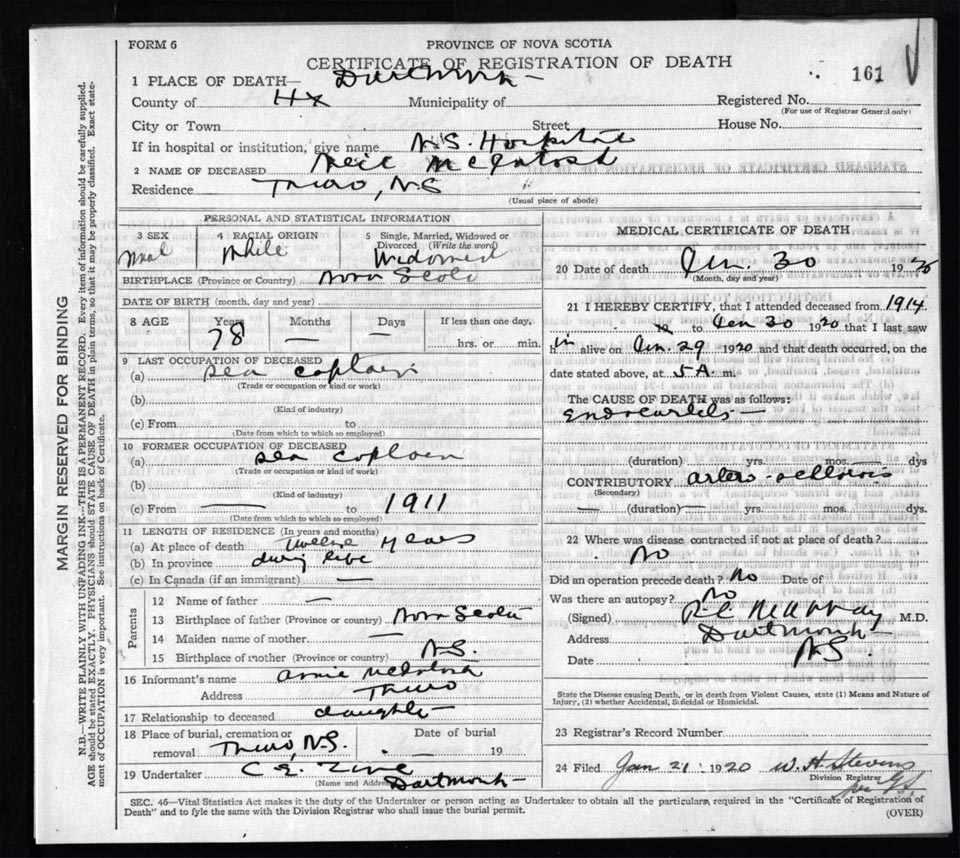 FORM 6
PROVINCE OF NOVA SCOTIA
CERTIFICATE OF REGISTRATION OF DEATH
161
1 PLACE OF DEATH— Dartmouth
County of Hx Municipality of Registered No.
(For use of Registrar General only)
City or Town Street House No.
If in hospital or institution, give name N.S. Hospital
2 NAME OF DECEASED Neil McIntosh
Residence Truro, N.S
(Usual place of abode)
PERSONAL AND STATISTICAL INFORMATION
3 SEX 4 RACIAL ORIGIN 5 Single, Married, Widowed or Divorced (Write the word)
Mal White Widowed
BIRTHPLACE (Province or Country) Nova Scotia
DATE OF BIRTH (month, day and year)
8 AGE Years Months Days If less than one day.
78 — — hrs. or min.
9 LAST OCCUPATION OF DECEASED
(a) sea captain
(Trade or occupation or kind or work)
(b)
(Kind of industry)
(c) From to
(Date from which to which so employed)
10 FORMER OCCUPATION OF DECEASED
(a) sea captain
(Trade or occupation or kind of work)
(b)
(Kind of industry)
(c) From — to 1911
(Date from which to which so employed)
11 LENGTH OF RESIDENCE (In years and months)
(a) At place of death Twelve years
(b) In province during life
(c) In Canada (if an immigrant) —
Parents
12 Name of father —
13 Birthplace of father (Province or country) Nova Scotia
14 Maiden name of mother —
15 Birthplace of mother (Province or country) N.S.
16 Informant's name Annie McIntosh
Address Truro
17 Relationship to deceased daughter
18 Place of burial, cremation or removal Truro, N.S. Date of burial — 19
19 Undertaker
(Name and Address) Dartmouth
MEDICAL CERTIFICATE OF DEATH
20 Date of death 30 1920
(Month, day and year)
21 I HEREBY CERTIFY, that I attended deceased from 1914
to 30 1920 that I last saw
h im alive on 29 1920 and that death occurred, on the
date stated above, at 5 A m.
The CAUSE OF DEATH was as follows:
Endocarditis —
(duration) yrs. mos. dys
CONTRIBUTORY arterio-sclerosis
(Secondary)
— (duration) — yrs. mos. dys.
22 Where was disease contracted if not at place of death?
No
Did an operation precede death? No Date of
Was there an autopsy? No
(Signed) M.D.
Address Dartmouth
Date N.S.
State the Disease causing Death, or in death from Violent Causes, state (1) Means and Nature of
Injury, (2) whether Accidental, Suicidal or Homicidal.
23 Registrar's Record Number
24 Filed Jan 21 1920 W. H. Stevens
Division Registrar
SEC. 46—Vital Statistics Act makes it the duty of the Undertaker or person acting as Undertaker to obtain all the particulars required in the "Certificate of Registration of
Death" and to fyle the same with the Division Registrar who shall issue the burial permit.
(OVER)
MARGIN RESERVED FOR BINDING
N.B.—WRITE PLAINLY WITH UNFADING INK—THIS IS A PERMANENT RECORD. Every item of information should be carefully supplied.
AGE should be stated EXACTLY. PHYSICIANS should STATE CAUSE OF DEATH in plain terms, so that it may be properly classified. Exact state-
ment of OCCUPATION is very important. See instructions on back of Certificate.